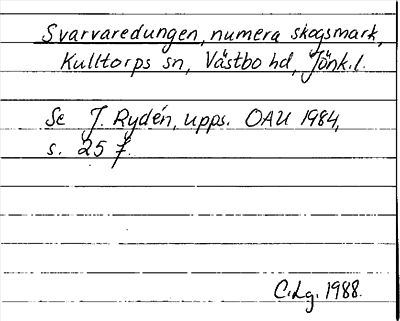 Svarvaredungen, numera skogsmark,
Kulltorps sn, Västbo hd, Jönk.l.
Se J. Rydén, upps. OAU 1984,
s. 25 f.
C.Lg. 1988.